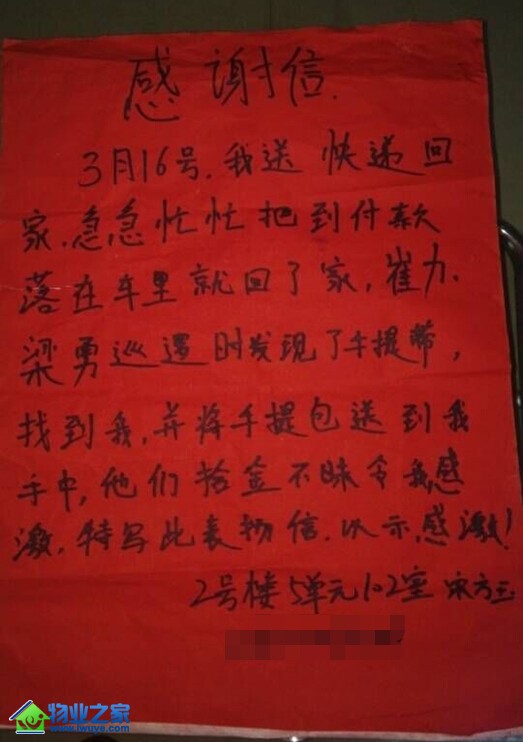 感谢信.
3月16号.我送快递回
家.急急忙忙把到付款
落在车里就回了家,崔力.
梁勇巡逻时发现了手提带,
找到我,并将手提包送到我
手中,他们拾金不昧令我感
激.特写此表扬信.以示感激!
2号楼5单元102室 宋方玉
物业之家